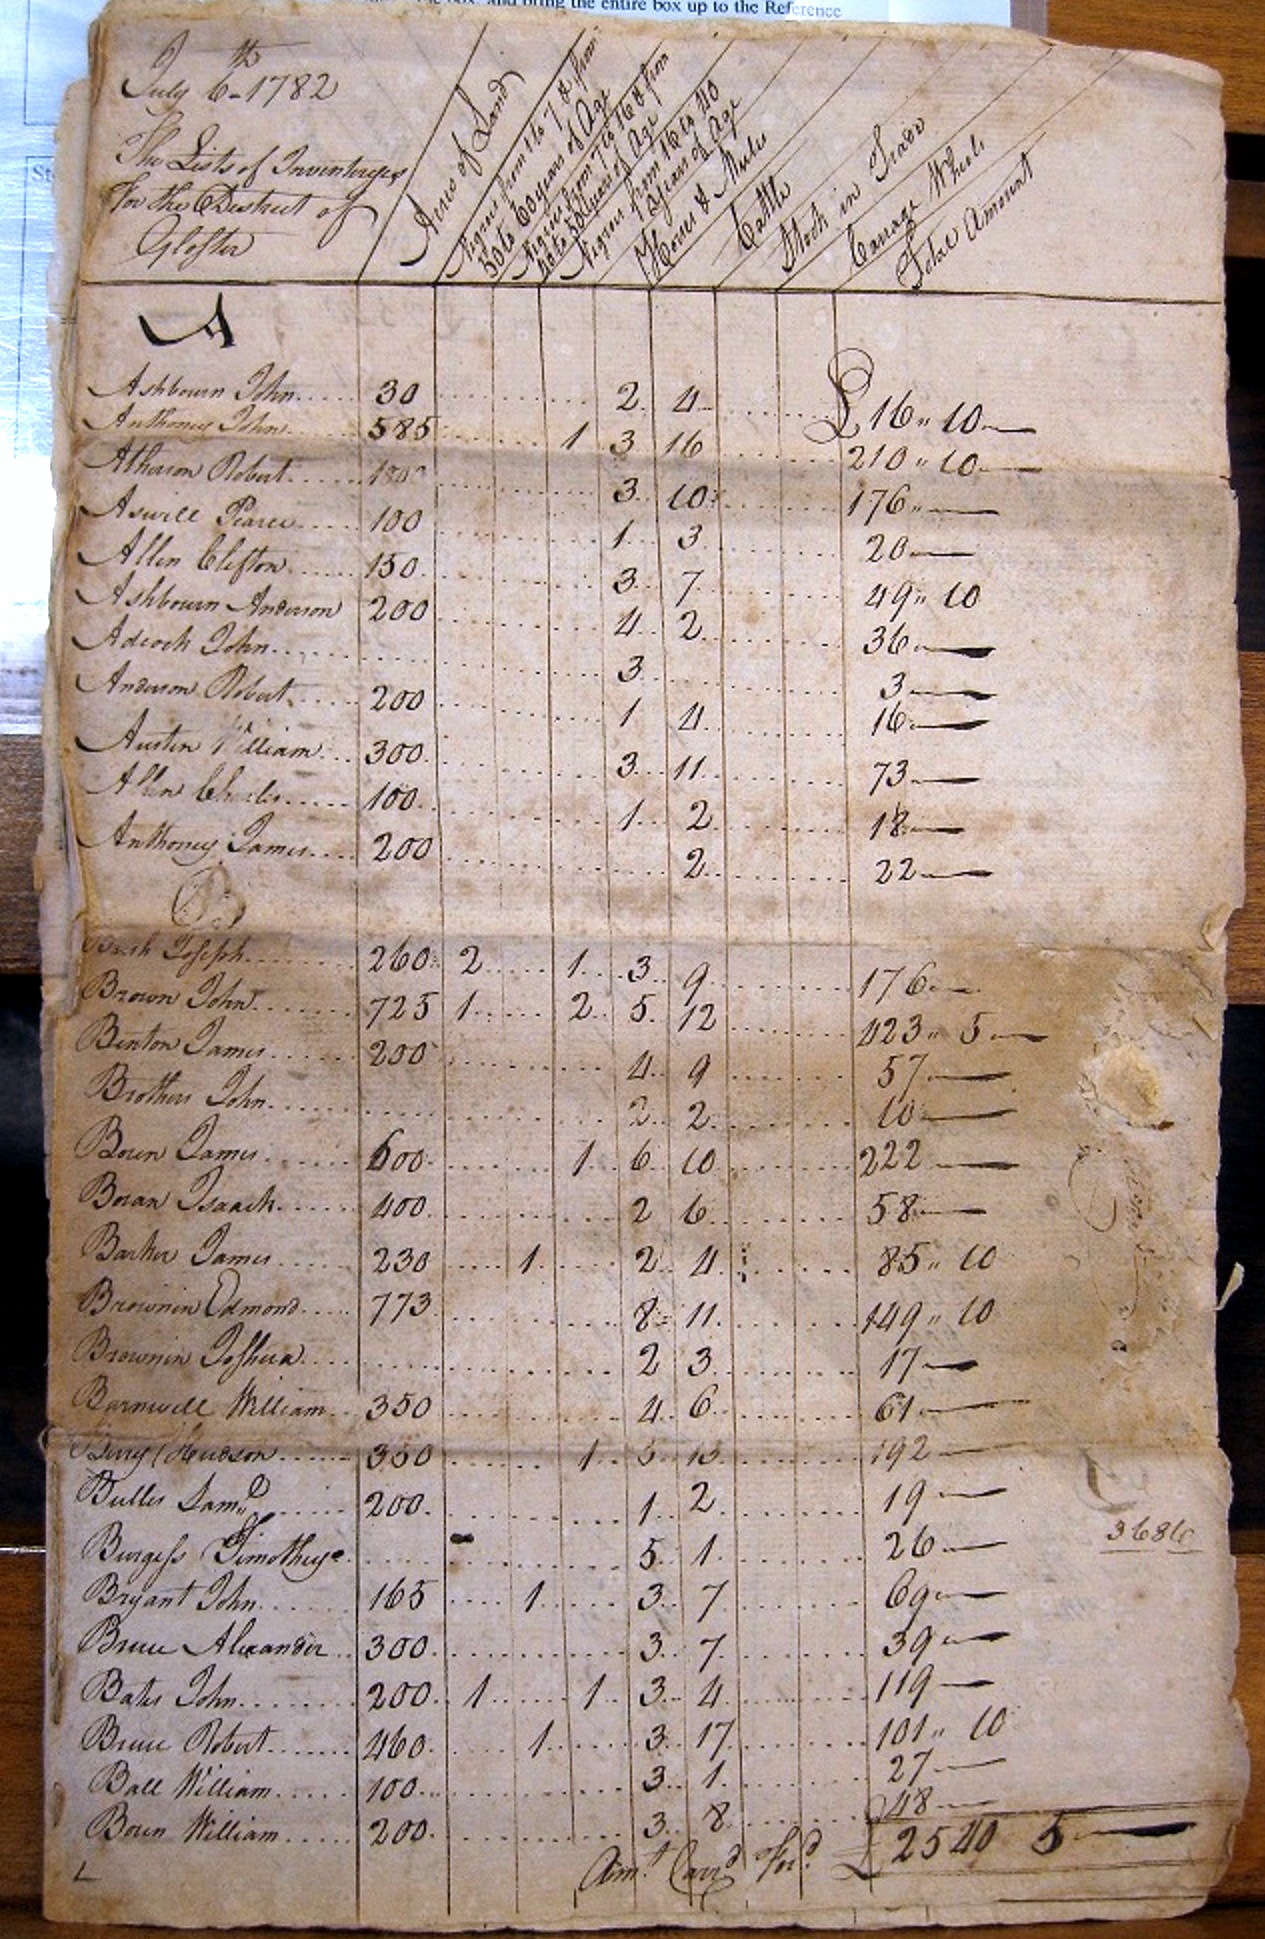 box, and bring the entire box up to the Reference
July 6th 1782
The Lists of Inventorys
For the District of
Gloster
Acres of Land
Negroes from 1 to 7 & from
50 to 60 years of Age
Negroes from 7 to 16 & from
40 to 50 years of Age
Negroes from 16 to 40
years of Age
Horses & Mules
Cattle
Stock in Trade
Carriage Wheels
Total Amount
A
Ashbourn John 30 2 4 £16 " 10
Anthoney John 585 1 3 16 210 " 10
Atkerson Robert 3 10 176 "
Aswill Pearce 100 1 3 20
Allin Clifton 150 3 7 49 " 10
Ashbourn Anderson 200 4 2 36
Adcock John 3 3
Anderson Robert 200 1 4 16
Austin William 300 3 11 73
Allin Charles 100 1 2 18
Anthoney James 200 2 22
B
Bush Joseph 260 2 1 3 9 176
Brown John 725 1 2 5 12 423 " 5
Benton James 200 4 9 57
Brothers John 2 2 10
Bowin James 600 1 6 10 222
Boran Isaack 400 2 6 58
Barker James 230 1 2 4 85 " 10
Brownin Edmond 773 8 11 149 " 10
Brownin Joshua 2 3 17
Barnwell William 350 4 6 61
Berry Hudson 350 1 5 13 192
Bulles Samll 200 1 2 19
3686
Burgess Timothy 5 1 26
Bryant John 165 1 3 7 69
Bruce Alexander 300 3 7 39
Bates John 200 1 1 3 4 119
Bruce Robert 460 1 3 17 101 " 10
Ball William 100 3 1 27
Bowin William 200 3 8 48
Amt Carrd Ford £2540 5